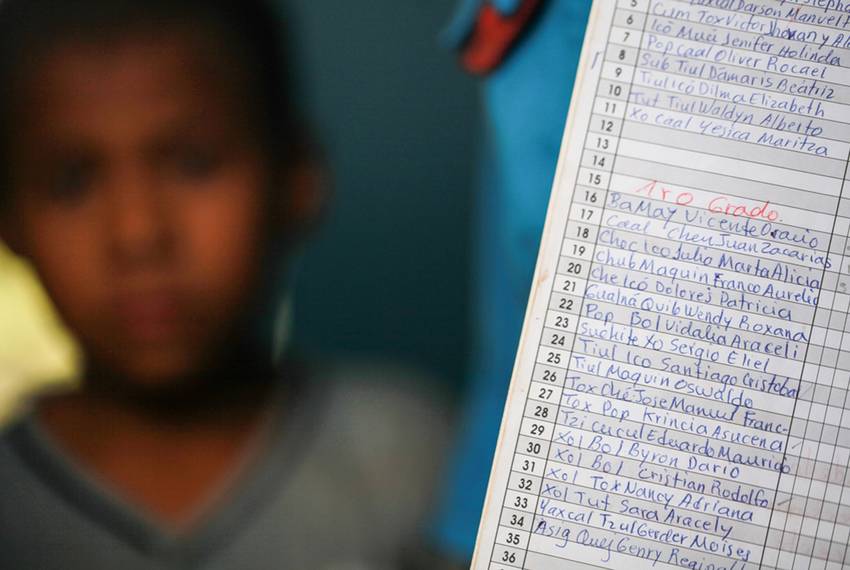 5 Darson Manuel
6 Cum Tox Victor Jhovany
7 Icó Mucú Jenifer Holinda
8 Pop Caal Oliver Rocael
9 Sub Tiul Dámaris Beatriz
10 Tiul icó Dilma Elizabeth
11 Tut Tiul Waldyn Alberto
12 Xo Caal Yesica Maritza
13
14
15
16 1ro Grado.
17 Ba May Vicente Oracio
18 Caal Chen Juan Zacarias
19 Choc Ico Julia Marta Alicia
20 Chub Maquin Franco Aurelio
21 Che Icó Dolores Patricia
22 Gualná Quib Wendy Roxana
23 Pop Bol Vidalia Araceli
24 Suchite Xo Sergio Eliel
25 Tiul Ico Santiago Cristobal
26 Tiul Maquin Oswaldo
27 Tox Ché Jose Manuel Franc-
28 Tox Pop Krincia Asucena
29 Tzi cucul Eduardo Mauricio
30 Xol Bol Byron Dario
31 Xol Bol Cristian Rodolfo
32 Xol Tox Nancy Adriana
33 Xol Tut Sara Aracely
34 Yaxcal Tzul Gerder Moises
35 Asig Quej Genry
36